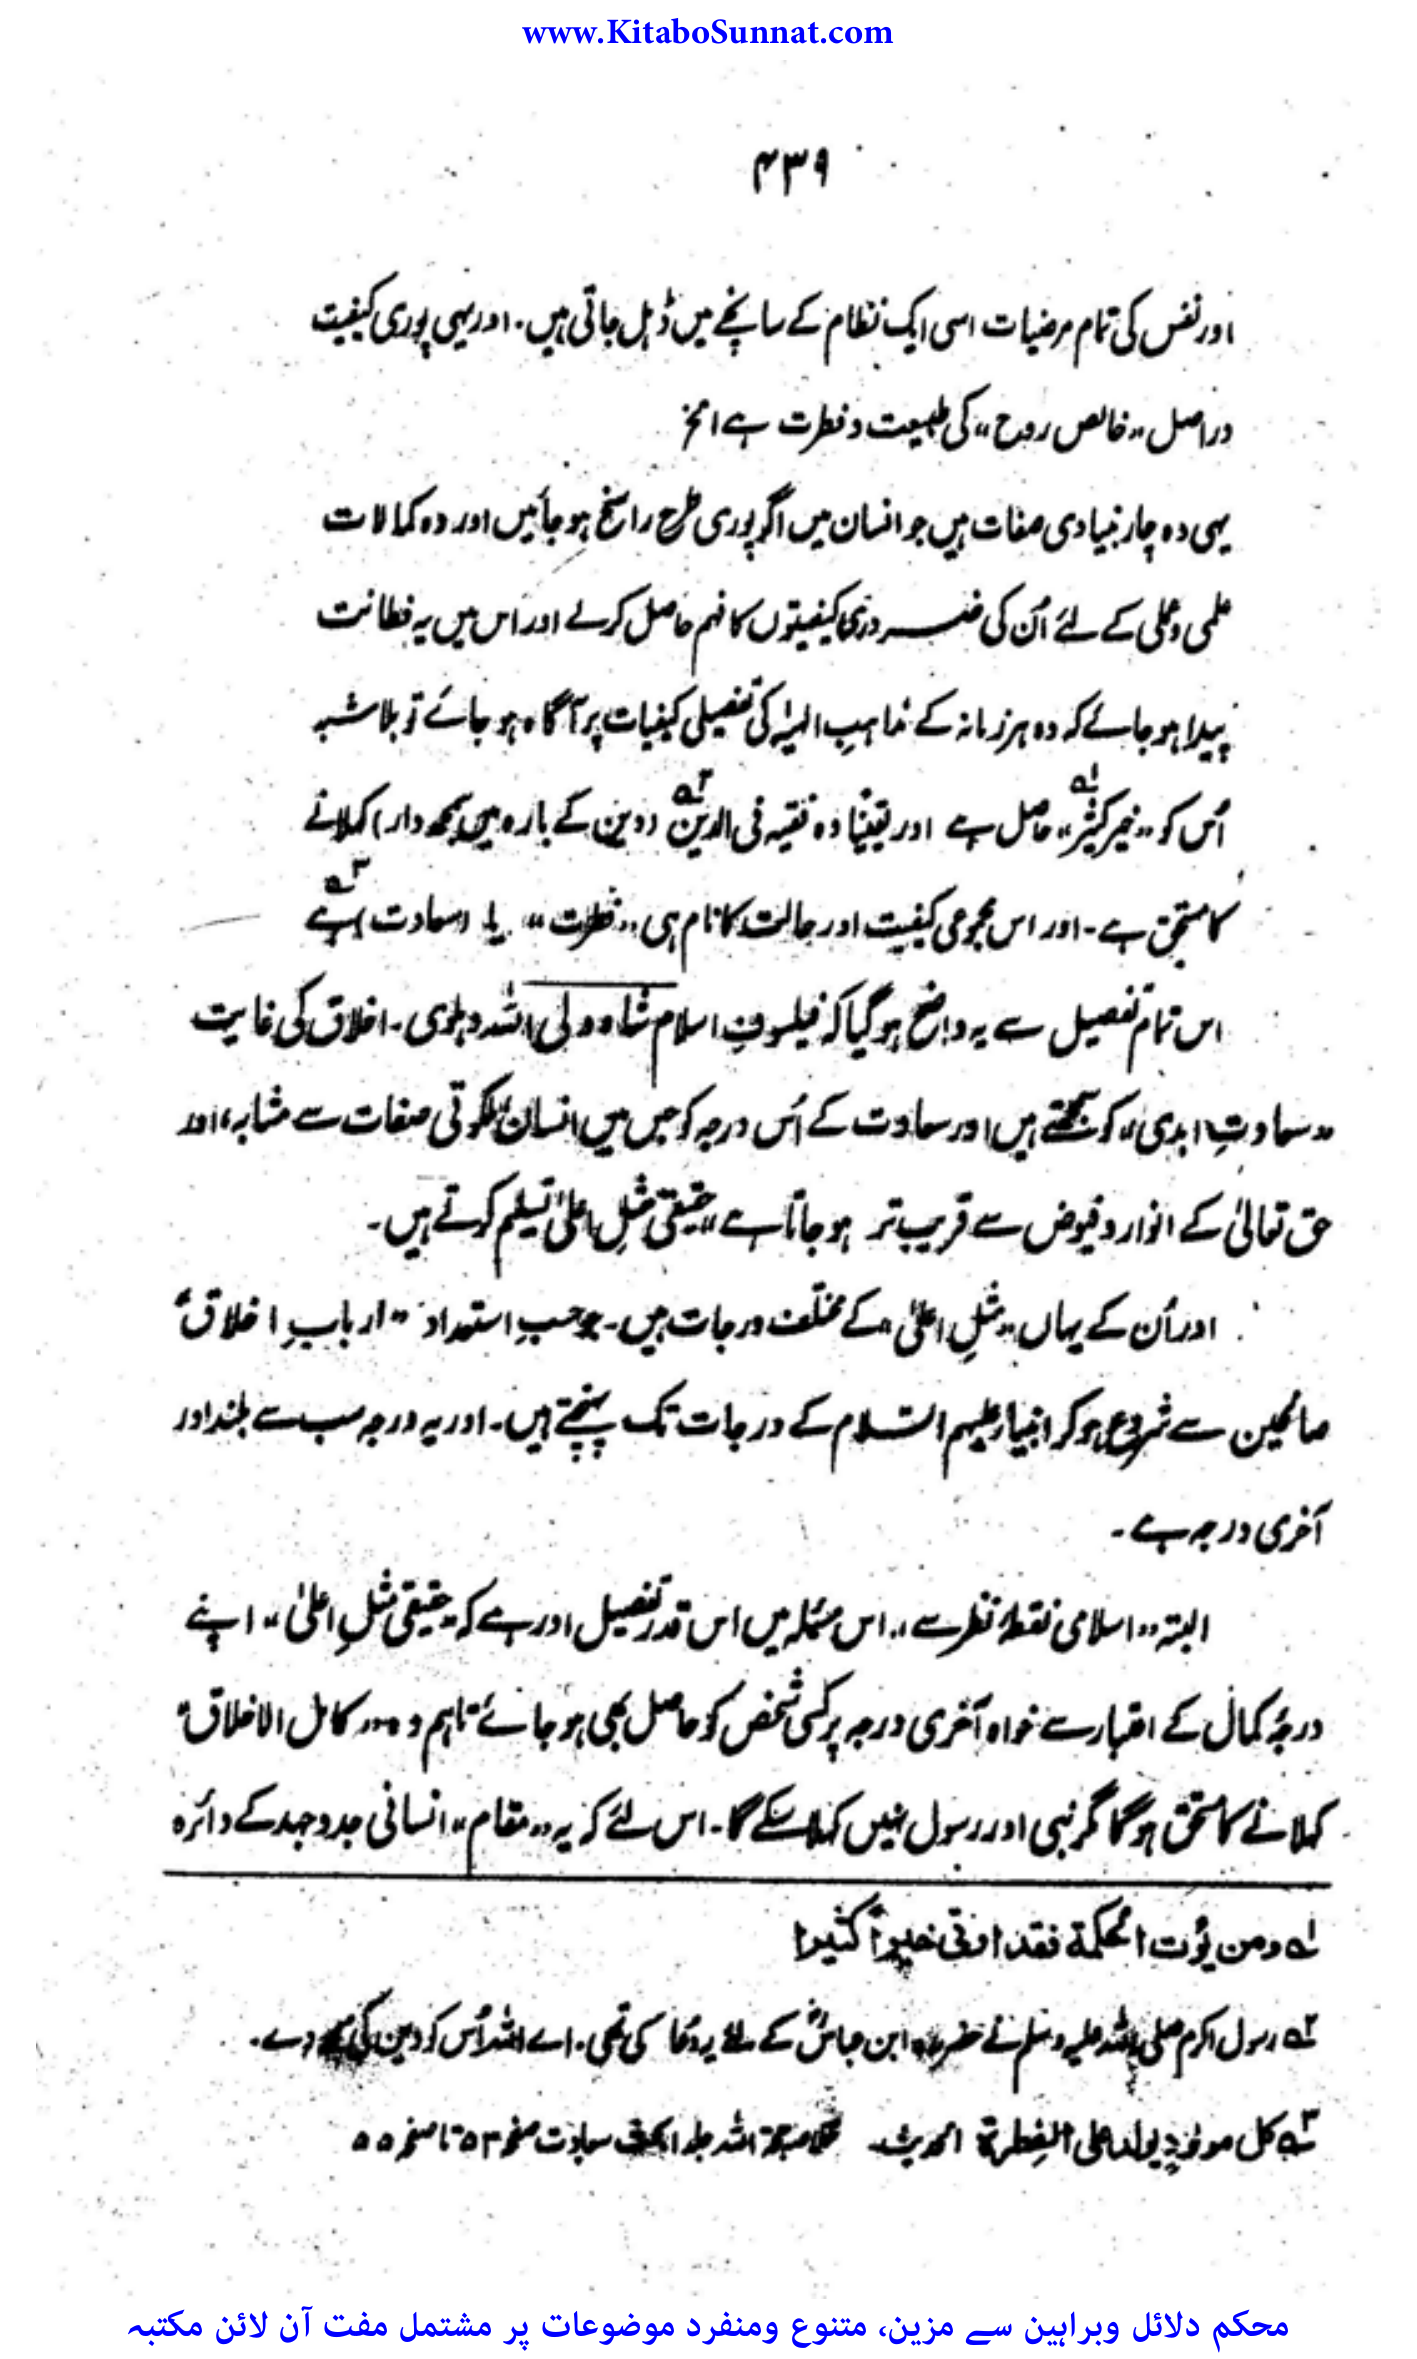 www.KitaboSunnat.com
۴۳۹
اور نفس کی تمام مرضیات اسی ایک نظام کے سانچے میں ڈہل جاتی ہیں۔ اور یہی پوری کیفیت
دراصل ”خالص روح“ کی طبیعت و فطرت ہے الخ
یہی وہ چار بنیادی صفات ہیں جو انسان میں اگر پوری طرح راسخ ہو جائیں اور وہ کمالات
علمی و عملی کے لئے اُن کی ضروری کیفیتوں کا فہم حاصل کرلے اور اس میں یہ فطانت
پیدا ہو جائے کہ وہ ہر زمانہ کے مذاہبِ الٰہیہ کی تفصیلی کیفیات پر آگاہ ہو جائے تو بلا شبہ
اُس کو ”خیر کثیر“ؔ۱ حاصل ہے اور یقیناً وہ فقیہ فی الدینؔ۲ (دین کے بارہ میں سمجھ دار) کہلانے
کا مستحق ہے۔ اور اس مجموعی کیفیت اور حالت کا نام ہی ”فطرت“ یا (سعادت) ہےؔ۳
اس تمام تفصیل سے یہ واضح ہوگیا کہ فیلسوفِ اسلام شاہ ولی اللہ دہلوی۔ اخلاق کی غایت
”سعادتِ ابدی“ کو سمجھتے ہیں اور سعادت کے اُس درجہ کو جس میں انسان ملکوتی صفات سے مشابہ، اور
حق تعالیٰ کے انوار و فیوض سے قریب تر ہو جاتا ہے ”حقیقی مثلِ اعلیٰ“ تسلیم کرتے ہیں۔
اور اُن کے یہاں ”مثلِ اعلیٰ“ کے مختلف درجات ہیں۔ جو حسبِ استعداد ”اربابِ اخلاق“
صالحین سے شروع ہو کر انبیاء علیہم السلام کے درجات تک پہنچتے ہیں۔ اور یہ درجہ سب سے بلند اور
آخری درجہ ہے۔
البتہ ”اسلامی نقطۂ نظر سے“ اس مسئلہ میں اس قدر تفصیل اور ہے کہ ”حقیقی مثلِ اعلیٰ“ اپنے
درجۂ کمال کے اعتبار سے خواہ آخری درجہ پر کسی شخص کو حاصل بھی ہو جائے تاہم وہ ”کامل الاخلاق“
کہلانے کا مستحق ہوگا مگر نبی اور رسول نہیں کہلا سکے گا۔ اس لئے کہ یہ ”مقام“ انسانی جدوجہد کے دائرہ
۱؎ ومن یؤت الحکمة فقد اوتی خیراً کثیرا
۲؎ رسول اکرم صلی اللہ علیہ وسلم نے حضرت ابن عباسؓ کے لئے یہ دُعا کی تھی۔ اے اللہ اُس کو دین کی سمجھ دے۔
۳؎ کل مولود یولد علی الفطرة الحدیث حجۃ اللہ جلد ۱ سعادت صفحہ ۵۳ تا صفحہ ۵۵
محکم دلائل وبراہین سے مزین، متنوع ومنفرد موضوعات پر مشتمل مفت آن لائن مکتبہ